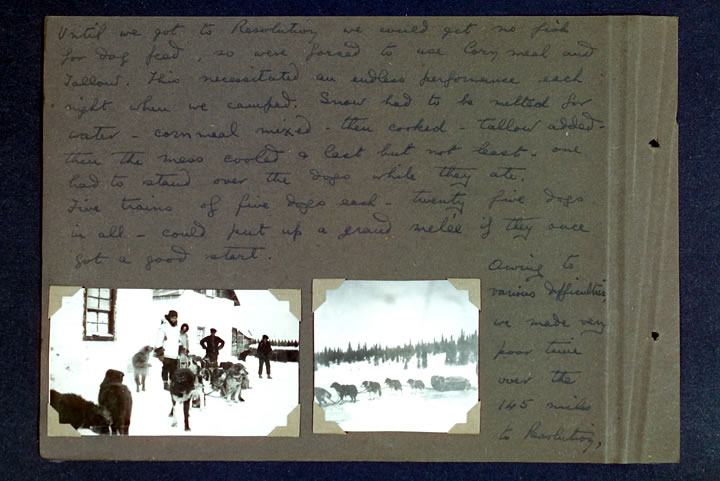 Until we got to Resolution we could get no fish
for dog feed, so were forced to use Corn meal and
Tallow. This necessitated an endless performance each
night when we camped. Snow had to be melted for
water - cornmeal mixed - then cooked - tallow added -
then the mess cooled & last but not least - one
had to stand over the dogs while they ate.
Five trains of five dogs each - twenty five dogs
in all - could put up a grand melée if they once
got a good start.
Owing to
various difficulties
we made very
poor time
over the
145 miles
to Resolution,